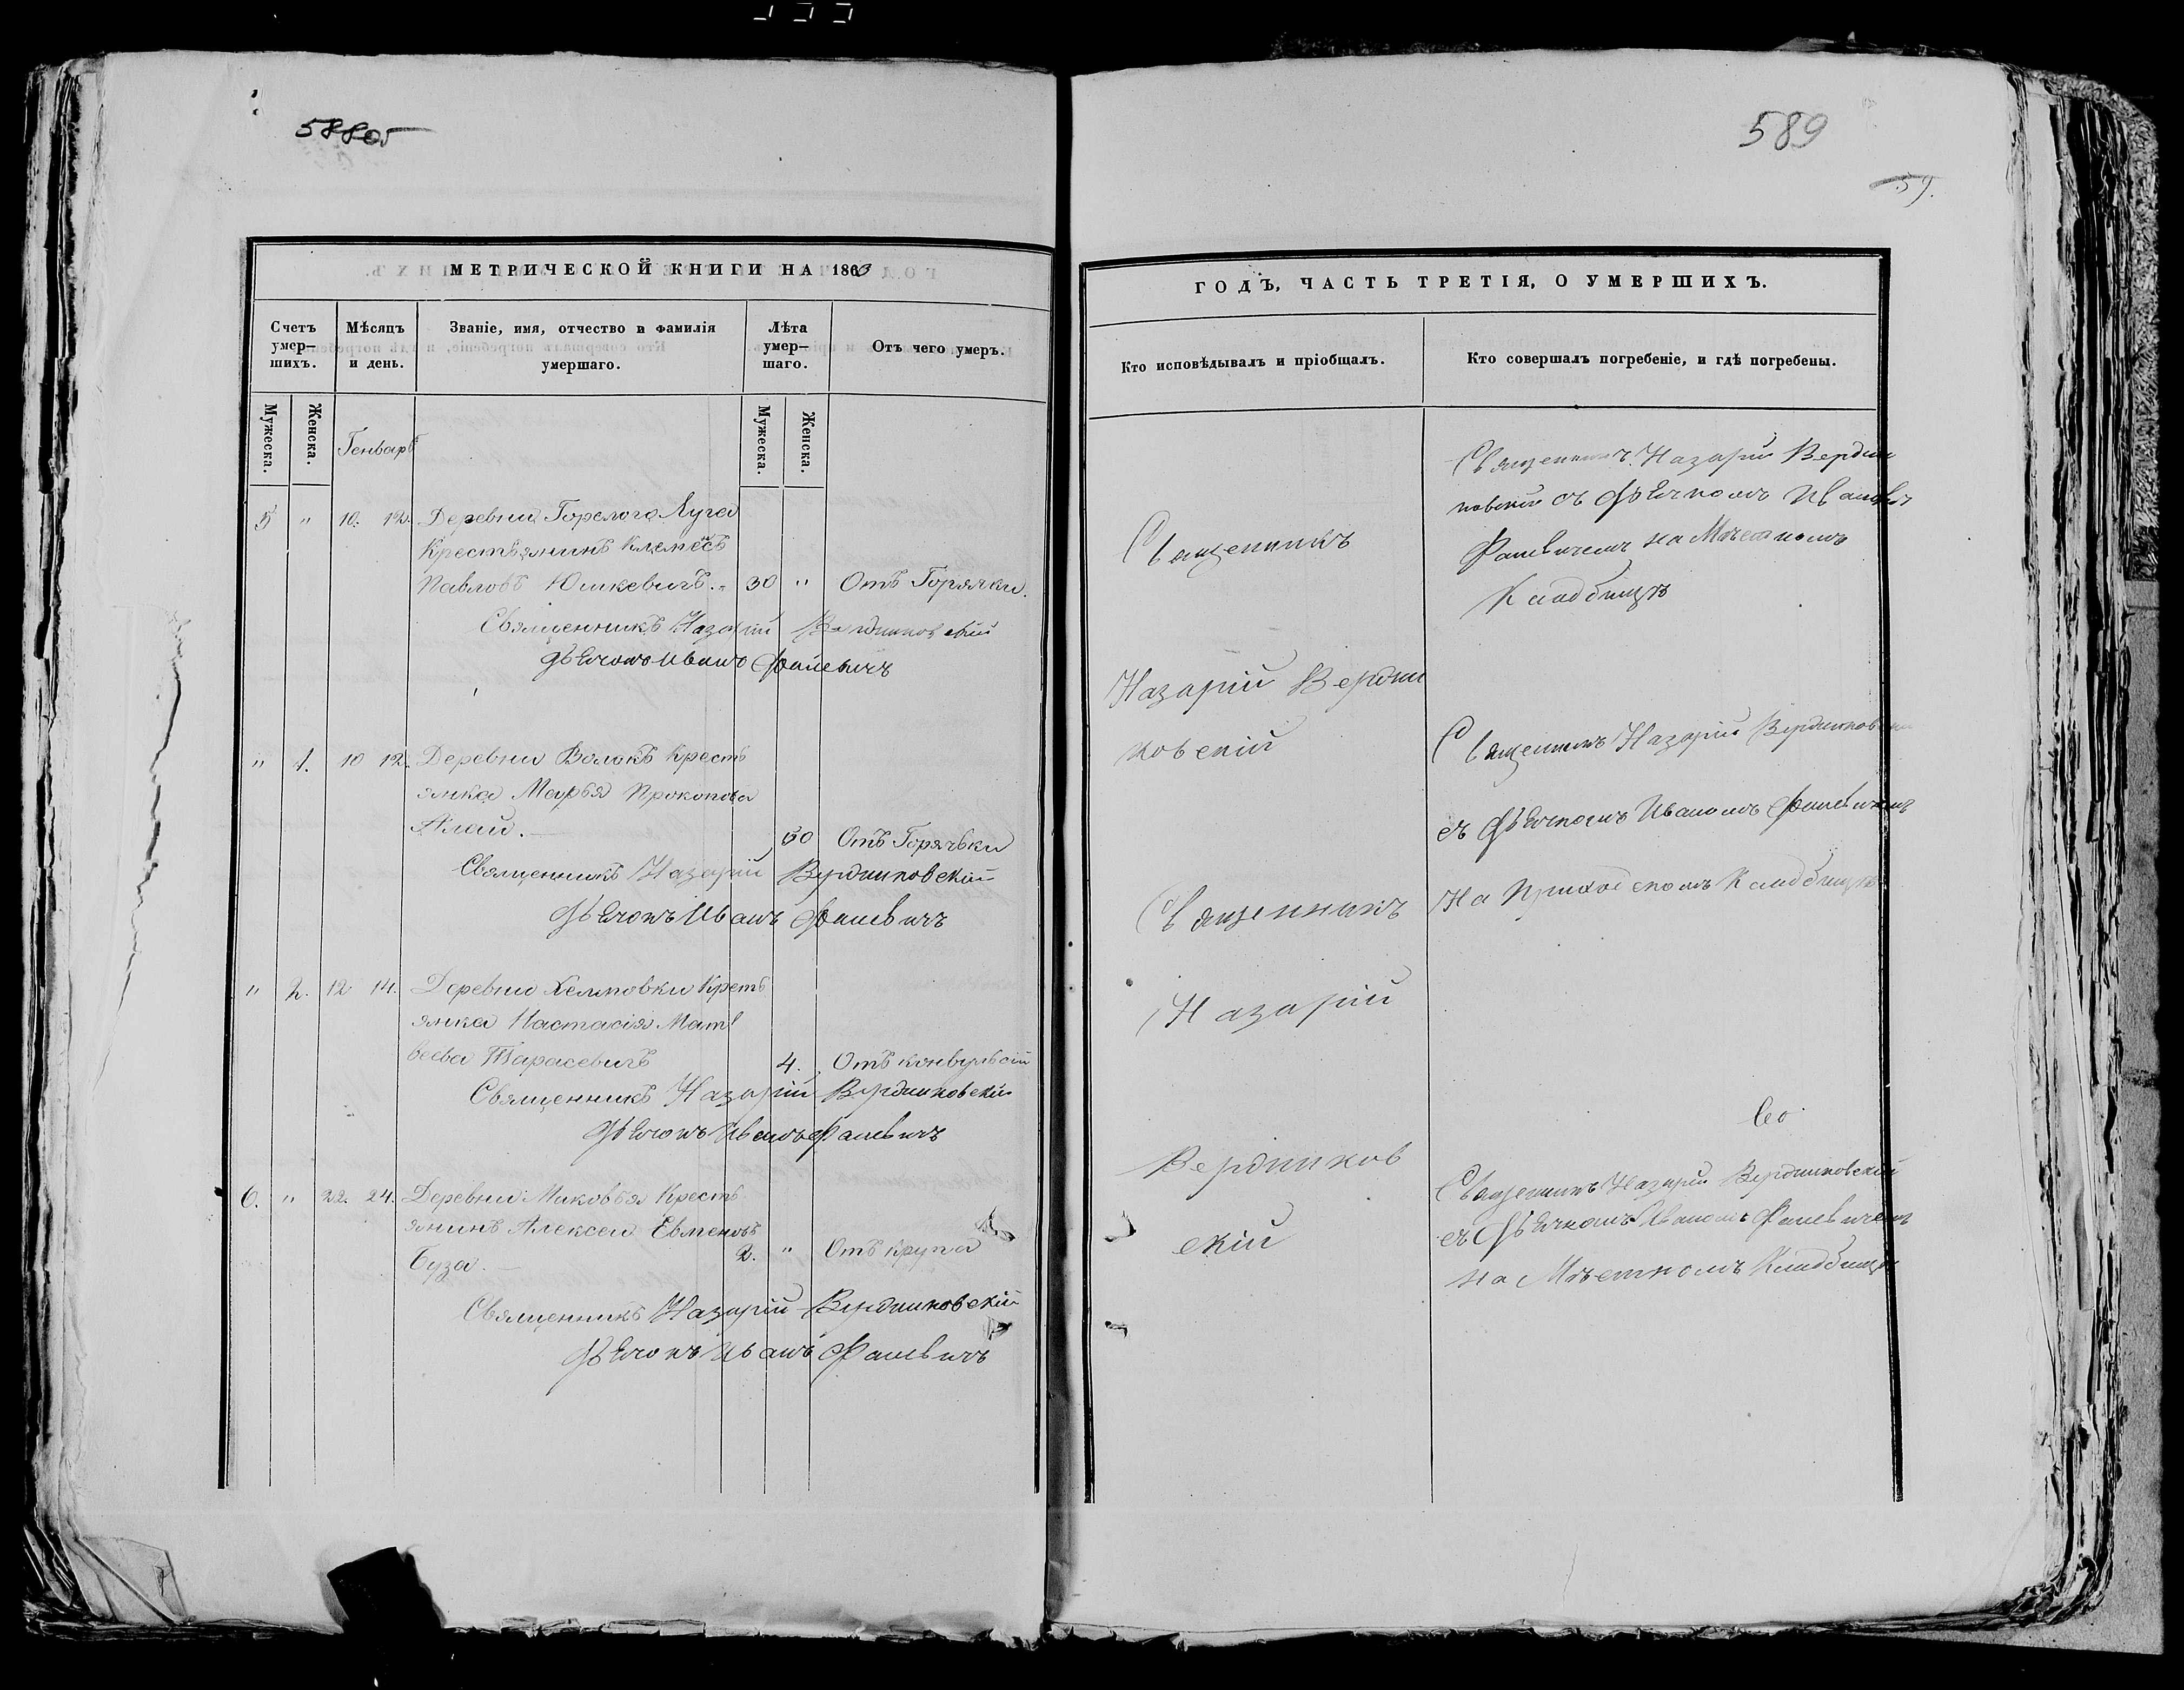 588об
МЕТРИЧЕСКОЙ КНИГИ НА 1863
Счетъ умер-шихъ.
Мѣсяцъ и день.
Званіе, имя, отчество и фамилія умершаго.
Лѣта умер-шаго.
Отъ чего умеръ.
Мужеска.
Женска.
Генварь
Мужеска.
Женска.
5 " 10. 12. Деревни Горелого Луга
Крестьянинъ Клеменсъ
Павловъ Юшкевичъ. 30 " Отъ Горячки.
Священникъ Назарій Вердниковскій
Дьячокъ Иванъ Фалевичъ
" 1. 10 12. Деревни Волокъ Кресть
янка Марья Прокопова
Алай. 30 Отъ Горячьки
Священникъ Назарій Вердниковскій
Дьячокъ Иванъ Фалевичъ
" 2. 12 14. Деревни Хелмовки Кресть
янка Настасія Мат
веева Тарасевичъ 4. Отъ конвульсій
Священникъ Назарій Вердниковскій
Дьячокъ Иванъ Фалевичъ
6. " 22. 24. Деревни Маковья Кресть
янинъ Алексей Евменовъ
Буза. 2. " Отъ крупа
Священникъ Назарій Вердниковскій
Дьячокъ Иванъ Фалевичъ
589
59.
ГОДЪ, ЧАСТЬ ТРЕТІЯ, О УМЕРШИХЪ.
Кто исповѣдывалъ и пріобщалъ.
Кто совершалъ погребеніе, и гдѣ погребены.
Священникъ
Назарій Вердни
ковскій
Священникъ
Назарій
Вердников
скій
Священникъ Назарій Вердни
ковскій съ Дьячкомъ Иваномъ
Фалевичемъ на Мѣстномъ
Кладбищѣ
Священникъ Назарій Вердниковскій
съ Дьячкомъ Иваномъ Фалевичемъ
На Приходскомъ Кладбищѣ
Священникъ Назарій Вердниковскій
съ Дьячкомъ Иваномъ Фалевичемъ
на Мѣстномъ Кладбищѣ